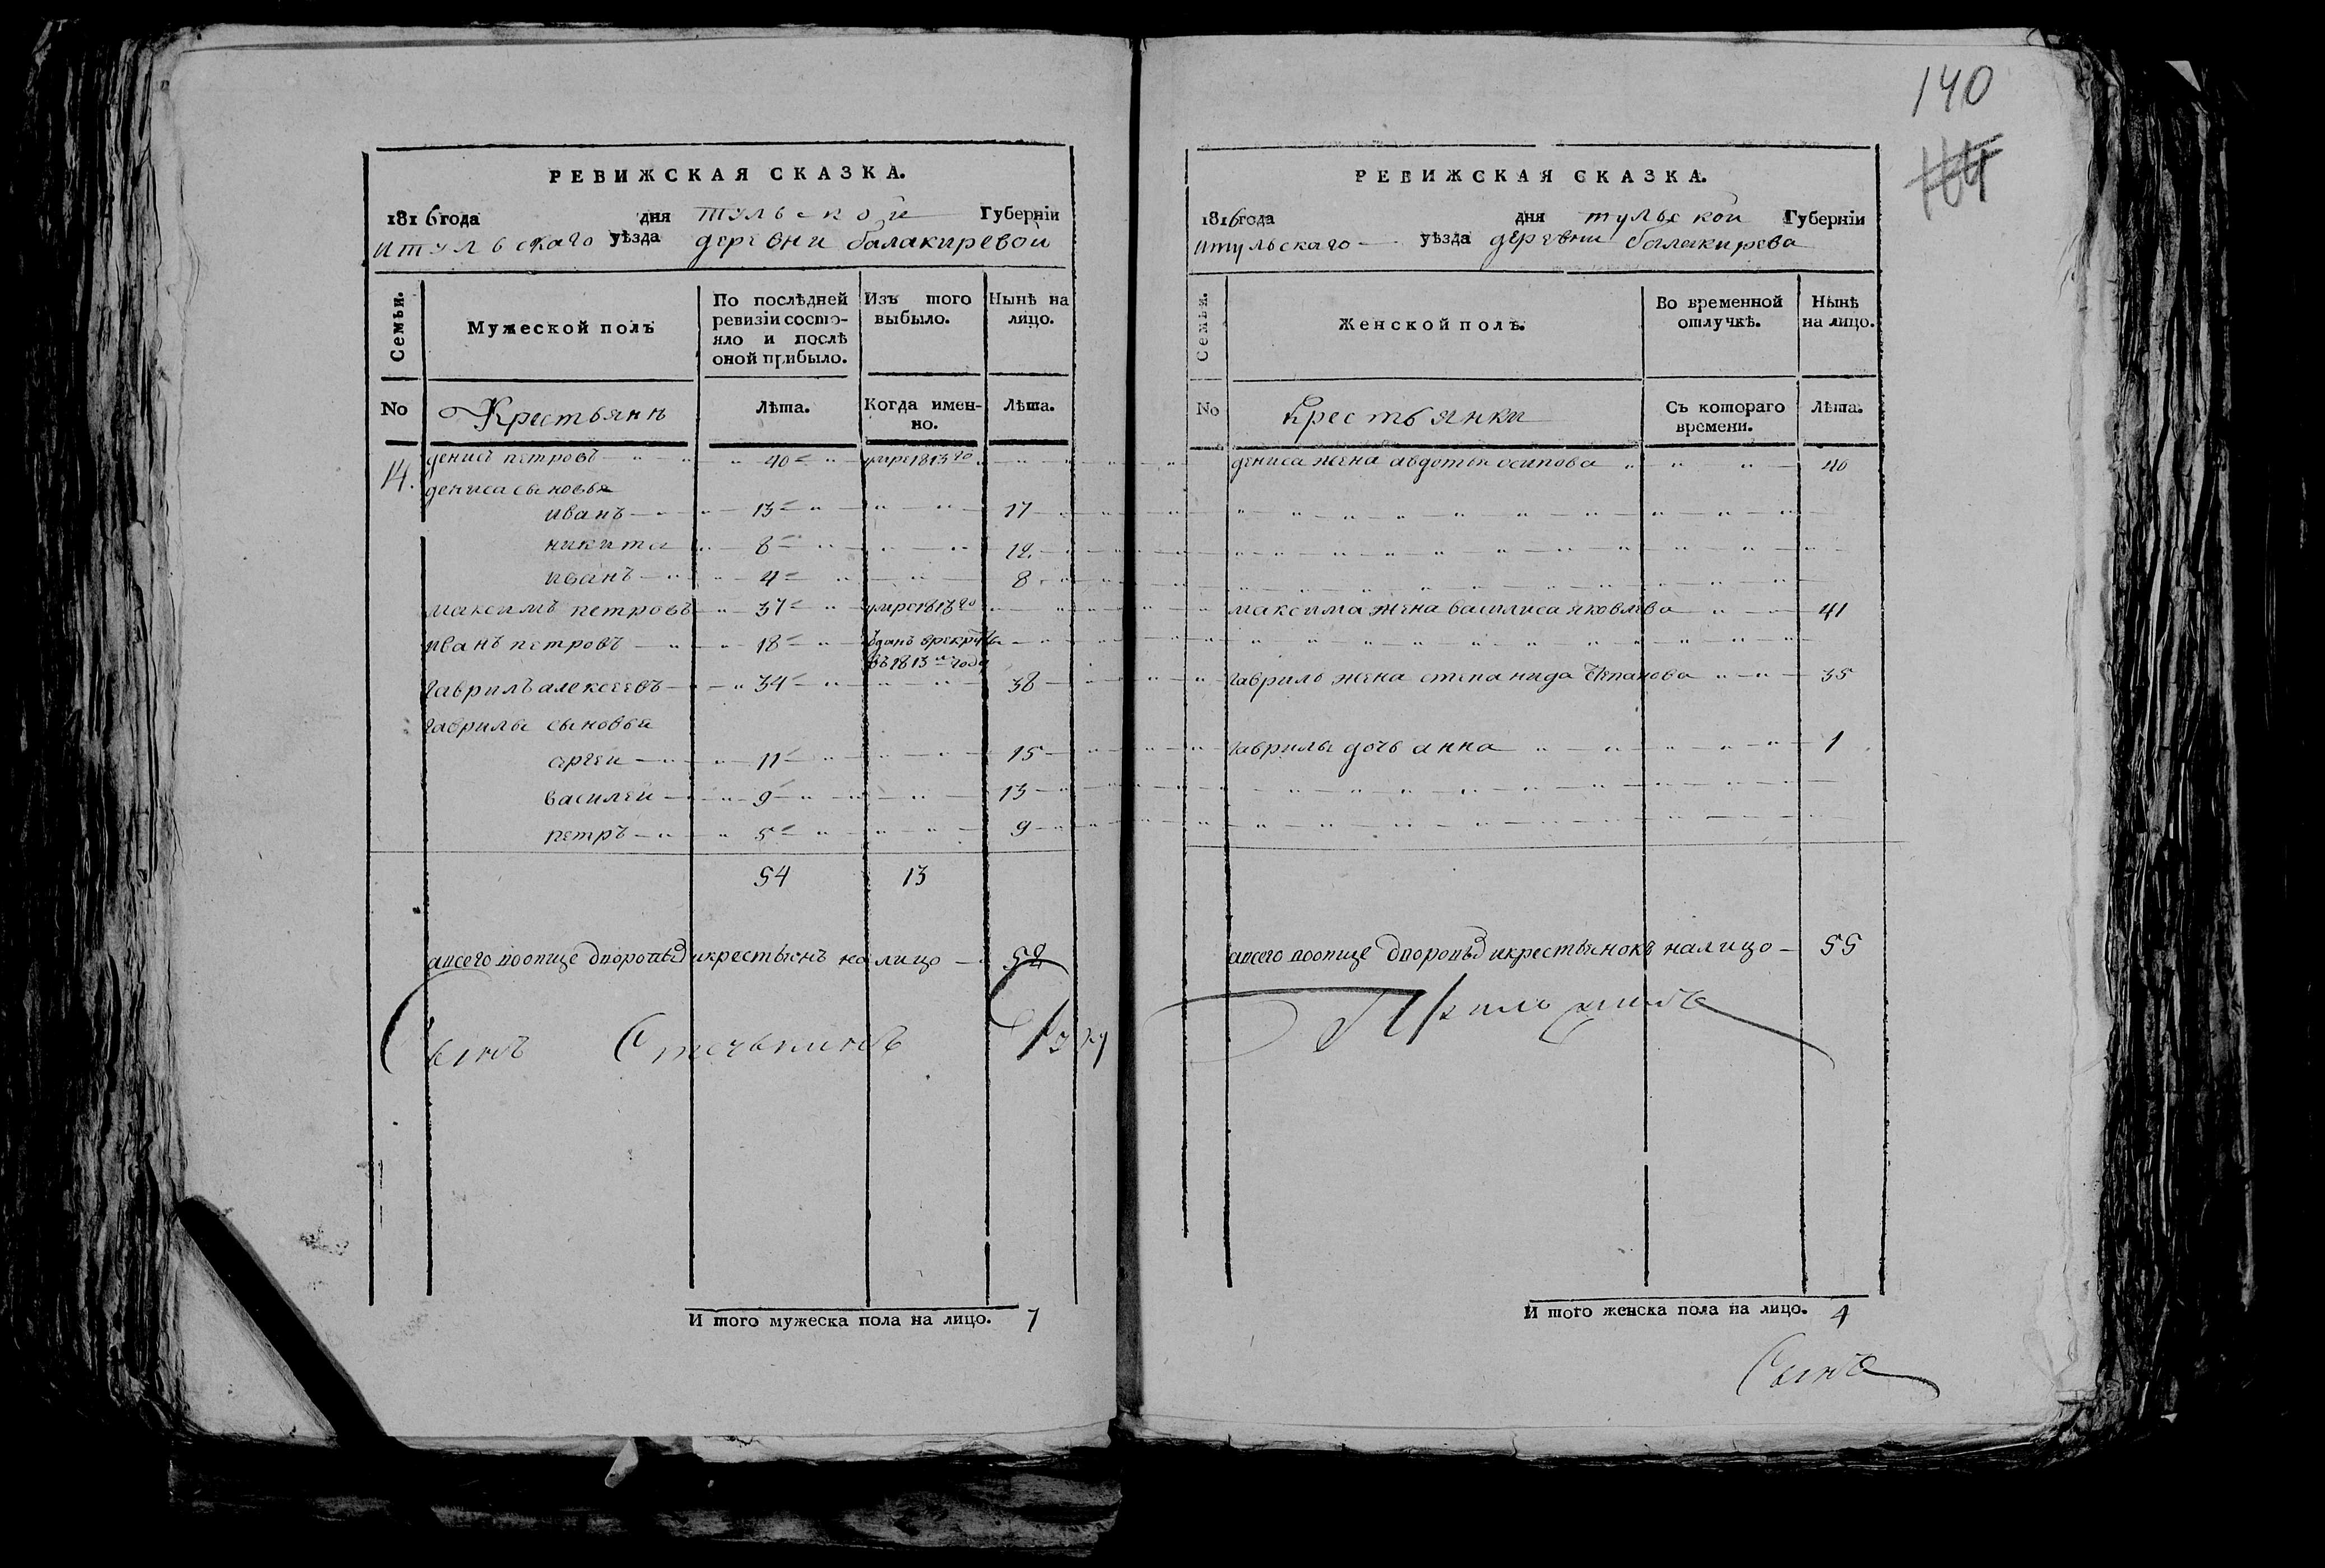 РЕВИЖСКАЯ СКАЗКА.
1816 года дня тульской Губерніи
итульскаго уѣзда деревни балакиревой
Семьи. Мужеской полъ По послѣдней ревизіи состояло и послѣ оной прибыло. Изъ того выбыло. Нынѣ на лицо.
No Крестьянѣ Лѣта. Когда именно. Лѣта.
14. денисъ петровъ 40 умре 1813го
дениса сыновья
иванъ 13 17
никита 8 12
иванъ 4 8
максимъ петровъ 37 умре 1813го
иванъ петровъ 18 въ 1813м году
гаврилъ алексеевъ 34 38
гаврилы сыновья
сергеи 11 15
василеи 9 13
петръ 5 9
54 13
авсего вообще дворовыхъ икрестьянъ налицо 52
И того мужеска пола на лицо. 7
140
РЕВИЖСКАЯ СКАЗКА.
1816 года дня тульской Губерніи
итульскаго уѣзда деревни балакирева
Семьи. Женской полъ. Во временной отлучкѣ. Нынѣ на лицо.
No Крестьянки Съ котораго времени. Лѣта.
дениса жена авдотья осипова 40
максима жена василиса яковлева 41
гаврилы жена степанида степанова 35
гаврилы дочь анна 1
авсего вообще дворовыхъ икрестьянокъ налицо 55
И того женска пола на лицо. 4
Сынъ